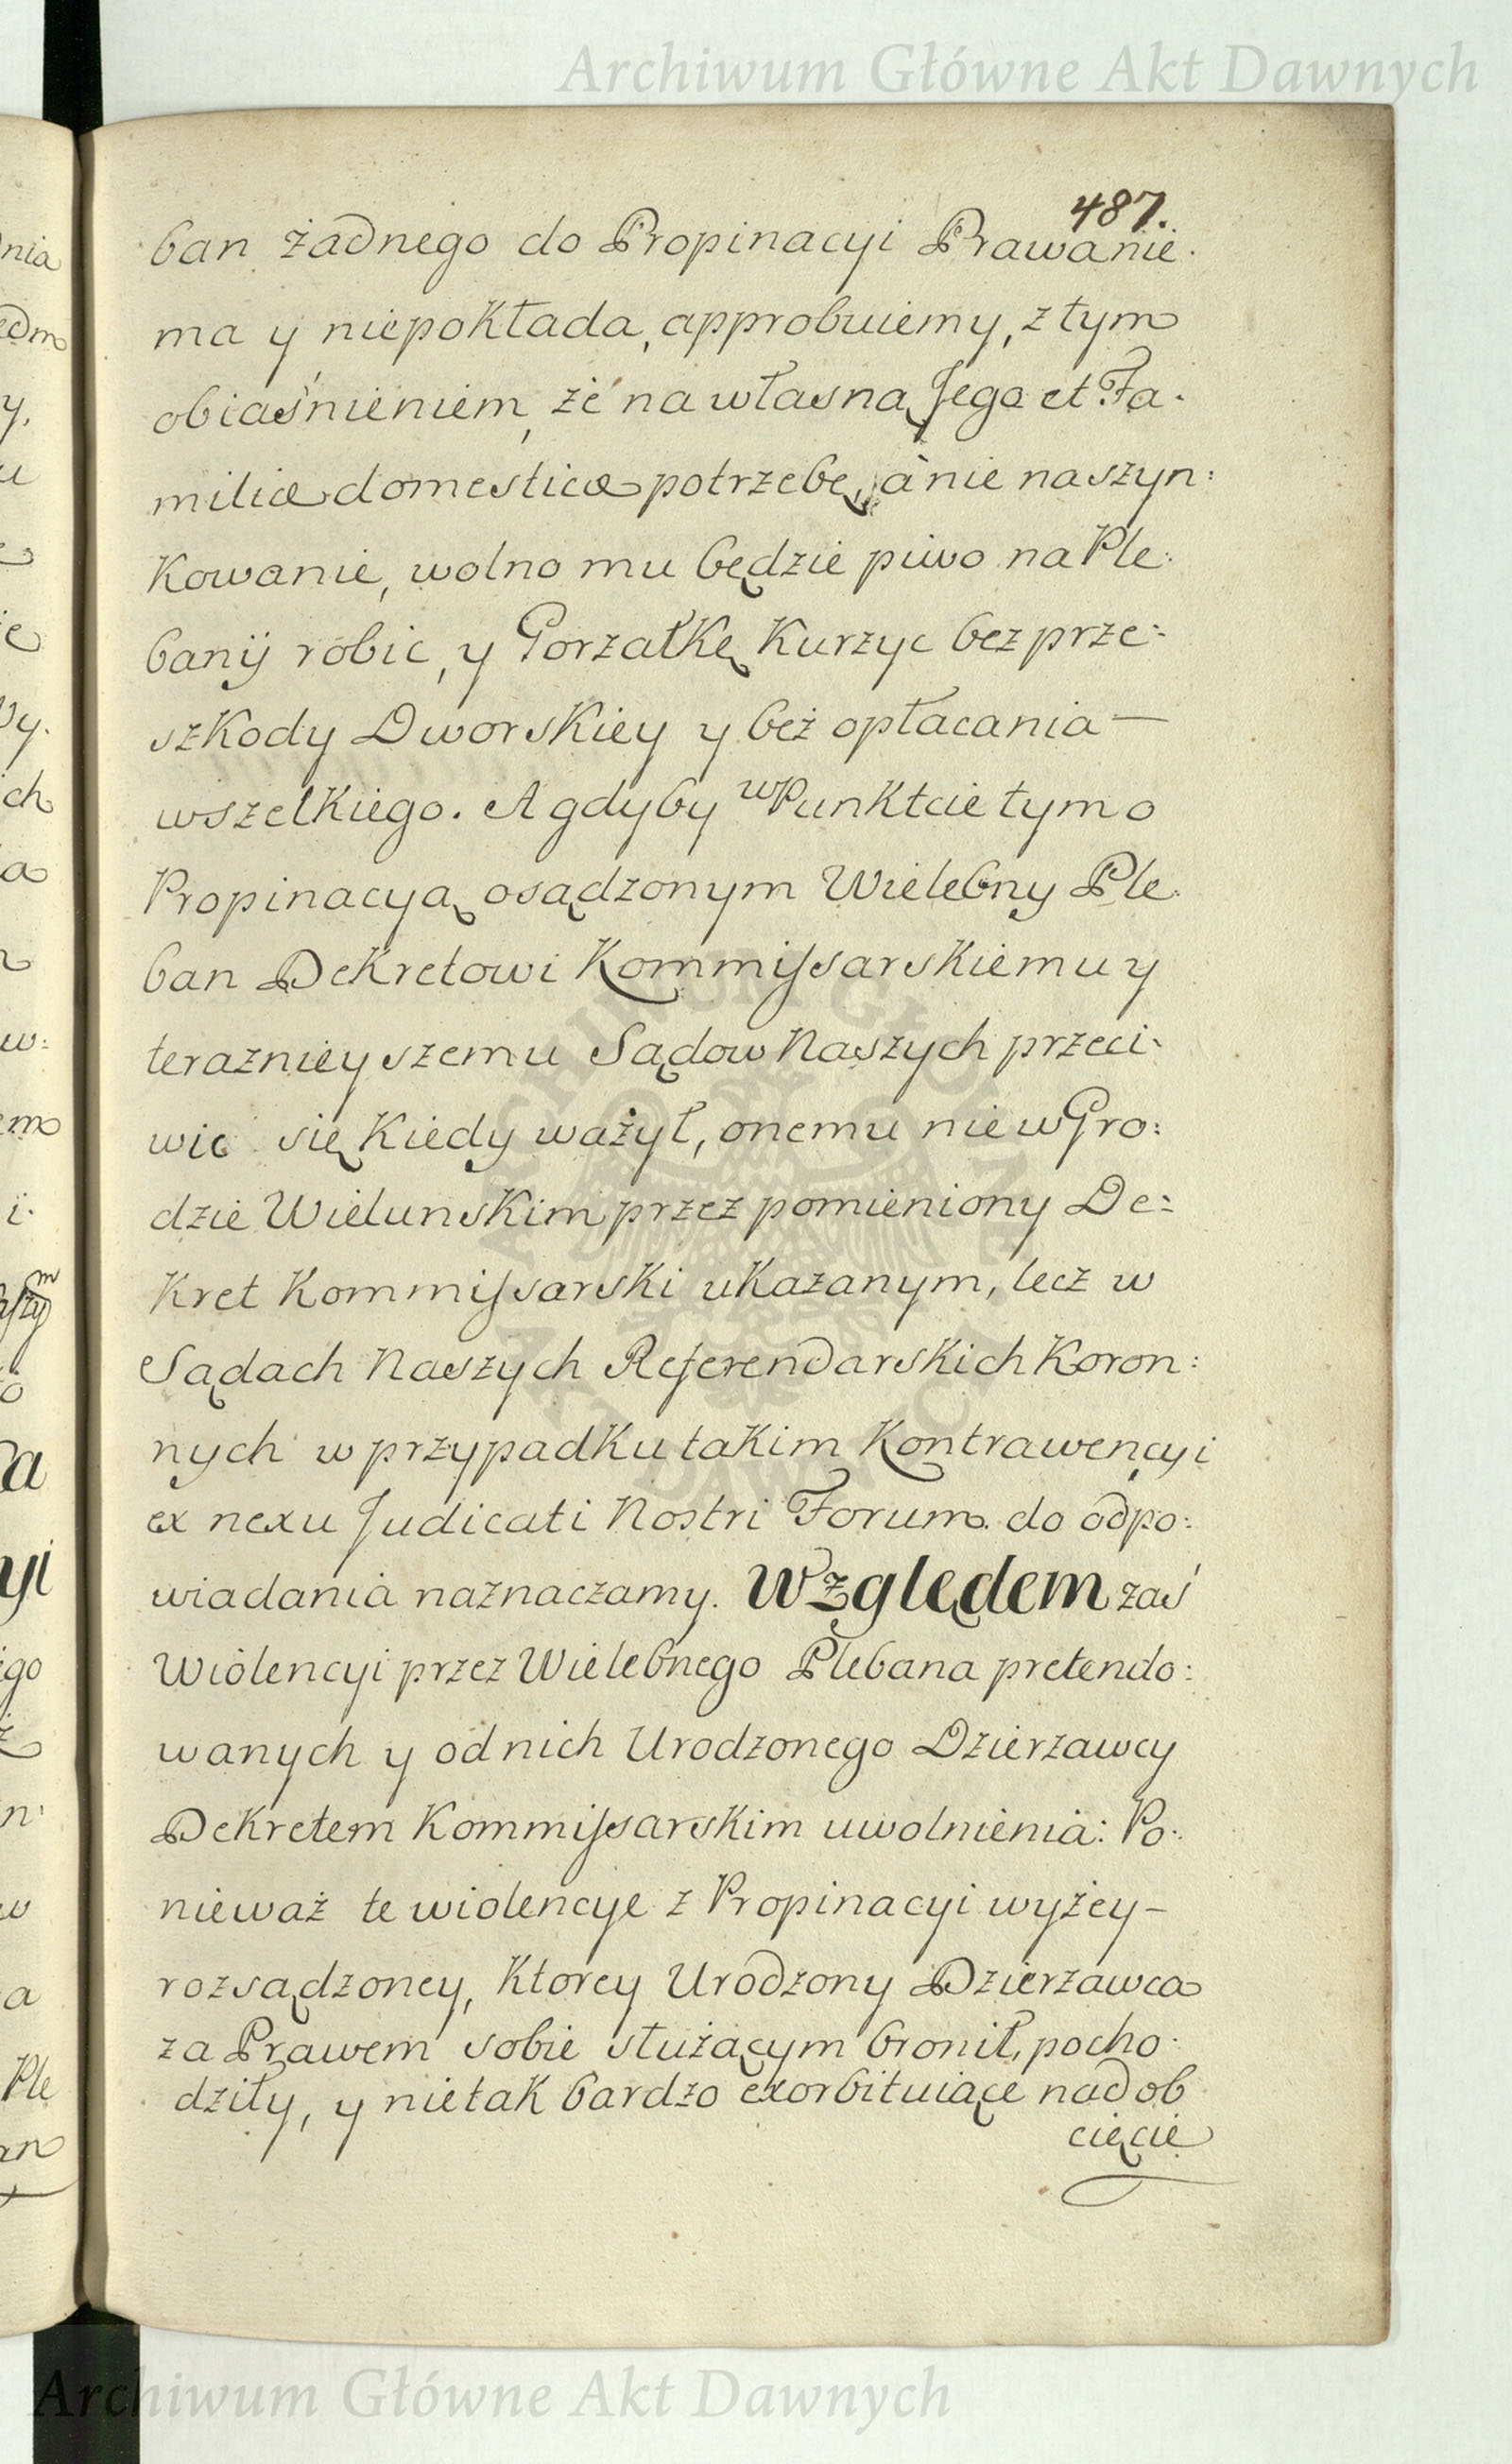 Archiwum Główne Akt Dawnych
487.
ban żadnego do Propinacyi Prawa nie
ma y niepokłada, approbuiemy, z tym
obiaśnieniem, że na własną Jego et Fa-
miliæ domesticæ potrzebę, a nie na szyn:
kowanie, wolno mu będzie piwo na Ple-
banij robic, y Gorzałkę Kurzyc bez prze-
szkody Dworskiey y bez opłacania —
wszelkiego. A gdyby w Punktcie tym o
Propinacyą osądzonym Wielebny Ple-
ban Dekretowi Kommissarskiemu y
terazniey szemu Sądow Naszych przeci-
wic się kiedy ważył, onemu nie w Gro:
dzie Wielunskim przez pomieniony De:
kret Kommissarski ukazanym, lecz w
Sądach Naszych Referendarskich Koron:
nych w przypadku takim Kontrawencyi
ex nexu Judicati Nostri Forum do odpo:
wiadania naznaczamy. Względem zaś
Wiolencyi przez Wielebnego Plebana pretendo:
wanych y od nich Urodzonego Dzierzawcy
Dekretem Kommissarskim uwolnienia: Po-
nieważ te wiolencye z Propinacyi wyżey –
rozsądzoney, Ktorey Urodzony Dzierzawca
za Prawem sobie służącym bronił, pocho-
dziły, y nietak bardzo exorbituiące nad ob
cięcie
Archiwum Główne Akt Dawnych